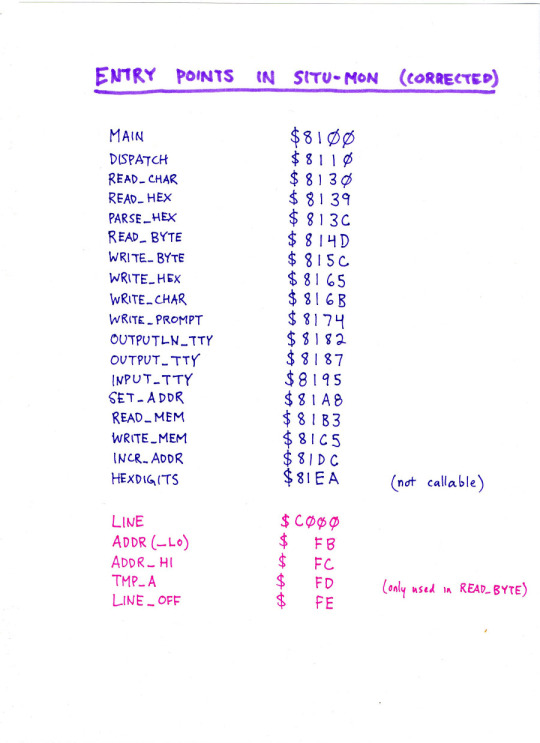 ENTRY POINTS IN SITU-MON (CORRECTED)
MAIN $81ØØ
DISPATCH $811Ø
READ_CHAR $813Ø
READ_HEX $8139
PARSE_HEX $813C
READ_BYTE $814D
WRITE_BYTE $815C
WRITE_HEX $8165
WRITE_CHAR $816B
WRITE_PROMPT $8174
OUTPUTLN_TTY $8182
OUTPUT_TTY $8187
INPUT_TTY $8195
SET_ADDR $81A8
READ_MEM $81B3
WRITE_MEM $81C5
INCR_ADDR $81DC
HEXDIGITS $81EA (not callable)
LINE $CØØØ
ADDR(_LO) $ FB
ADDR_HI $ FC
TMP_A $ FD (only used in READ_BYTE)
LINE_OFF $ FE